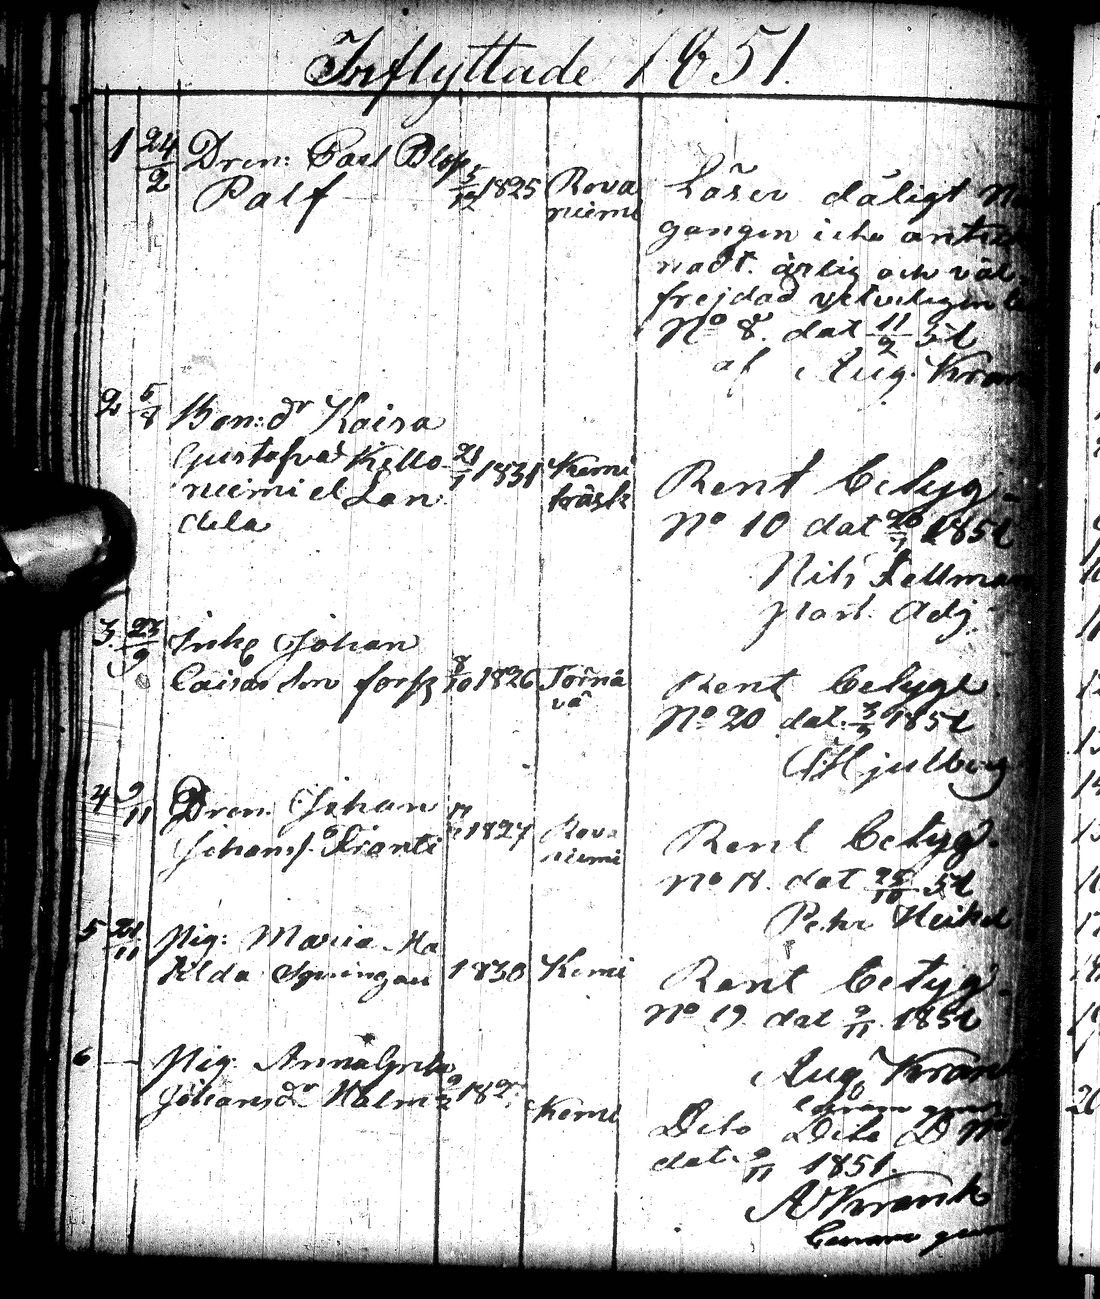 Inflyttade 1851.
1 24/2 Dren: Carl Olof
Ralf 5/12 1825 Rova
niemi
Läser dåligt
gången icke
nadt. ärlig och väl
frejdad
No 8. dat 11/2 51
af Aug. Kran
2 5/8 Bon: dr Kaisa
Gustafva Kello 21/1 1831 Kemi
niemi el Lan träsk
dela
Rent betyg
No 10 dat 26/7 1851
Nils Fellman
Past. Adj
3. 23/9 Inh Johan
Caisas Son forss 8/10 1826 Tornå
vå
Rent betyg
No 20 dat 3/9 1851
Hjelberg
4 9/11 Dren. Johan
Johanss. 1827 Rova
niemi
Rent betyg
No 18. dat 25/10 51
Petr Heikel
5 21/11 Pig: Maria Ma
tilda 1830 Kemi
Rent betyg
No 19 dat 9/11 1851
Aug Krank
6 Pig: Anna Greta
Johansdr Halm 9/2 Kemi
Dito Dito D No
dat. 9/11 1851.
A Krank